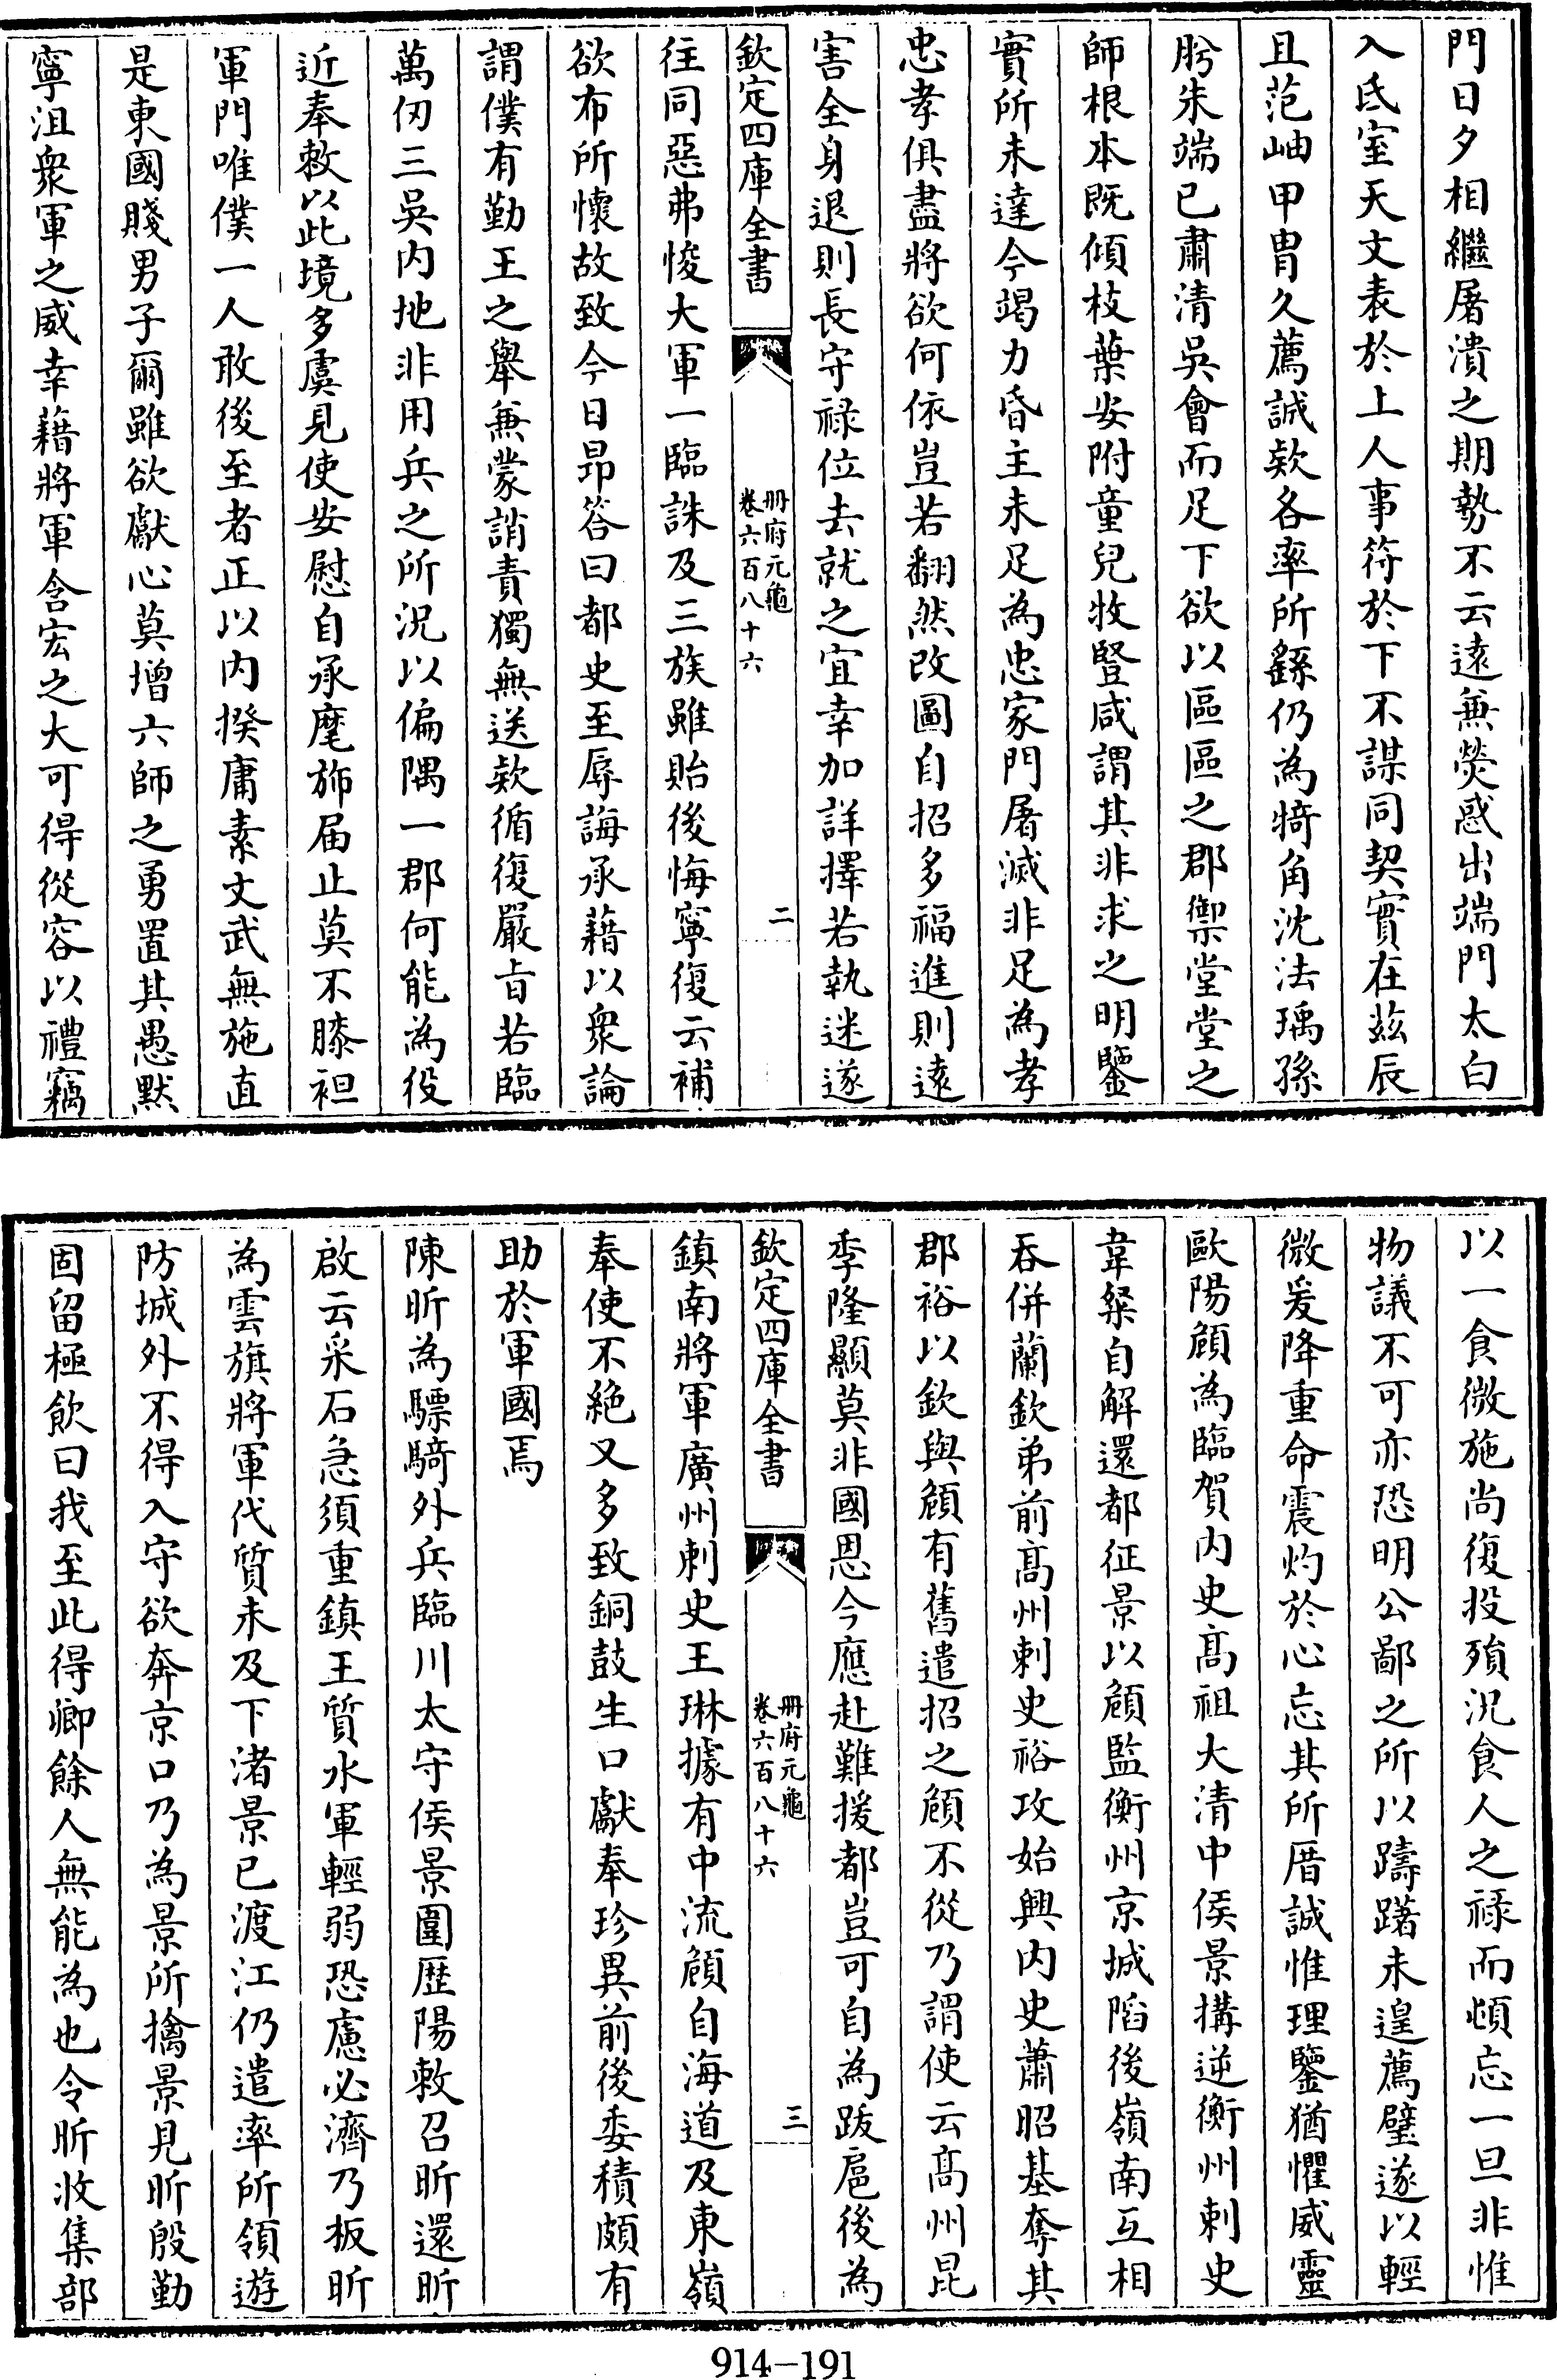 門日夕相繼屠潰之期勢不云遠兼熒惑出端門太白
入氐室天文表於上人事符於下不謀同契實在兹辰
且范岫甲胄久薦誠欵各率所繇仍為犄角沈法瑀孫
肹朱端已肅清吳會而足下欲以區區之郡禦堂堂之
師根本既傾枝葉安附童兒牧豎咸謂其非求之明鑒
實所未達今竭力昏主未足為忠家門屠滅非足為孝
忠孝俱盡將欲何依豈若翻然改圖自招多福進則遠
害全身退則長守禄位去就之宜幸加詳擇若執迷遂
欽定四庫全書
冊府元龜
卷六百八十六
二
往同惡弗悛大軍一臨誅及三族雖貽後悔寧復云補
欲布所懷故致今日昂答曰都史至辱誨承藉以衆論
謂僕有勤王之舉兼蒙誚責獨無送欵循復嚴旨若臨
萬仞三吳内地非用兵之所況以偏隅一郡何能為役
近奉敕以此境多虞見使安慰自承麾斾届止莫不膝袒
軍門唯僕一人敢後至者正以内揆庸素文武無施直
是東國賤男子爾雖欲獻心莫增六師之勇置其愚默
寧沮衆軍之威幸藉將軍含宏之大可得從容以禮竊
以一食微施尚復投殞況食人之禄而頓忘一旦非惟
物議不可亦恐明公鄙之所以躊躇未遑薦璧遂以輕
微爰降重命震灼於心忘其所厝誠惟理鑒猶懼威靈
歐陽頠為臨賀内史髙祖大清中侯景搆逆衡州刺史
韋粲自解還都征景以頠監衡州京城陷後嶺南互相
吞併蘭欽弟前髙州刺史裕攻始興内史蕭昭基奪其
郡裕以欽與頠有舊遣招之頠不從乃謂使云髙州昆
季隆顯莫非國恩今應赴難援都豈可自為跋扈後為
欽定四庫全書
冊府元龜
卷六百八十六
三
鎮南將軍廣州刺史王琳據有中流頠自海道及東嶺
奉使不絶又多致銅鼓生口獻奉珍異前後委積頗有
助於軍國焉
陳昕為驃騎外兵臨川太守侯景圍歴陽敕召昕還昕
啟云采石急須重鎮王質水軍輕弱恐慮必濟乃板昕
為雲旗將軍代質未及下渚景已渡江仍遣率所領遊
防城外不得入守欲奔京口乃為景所擒景見昕殷勤
固留極飲曰我至此得卿餘人無能為也令昕收集部
914-191